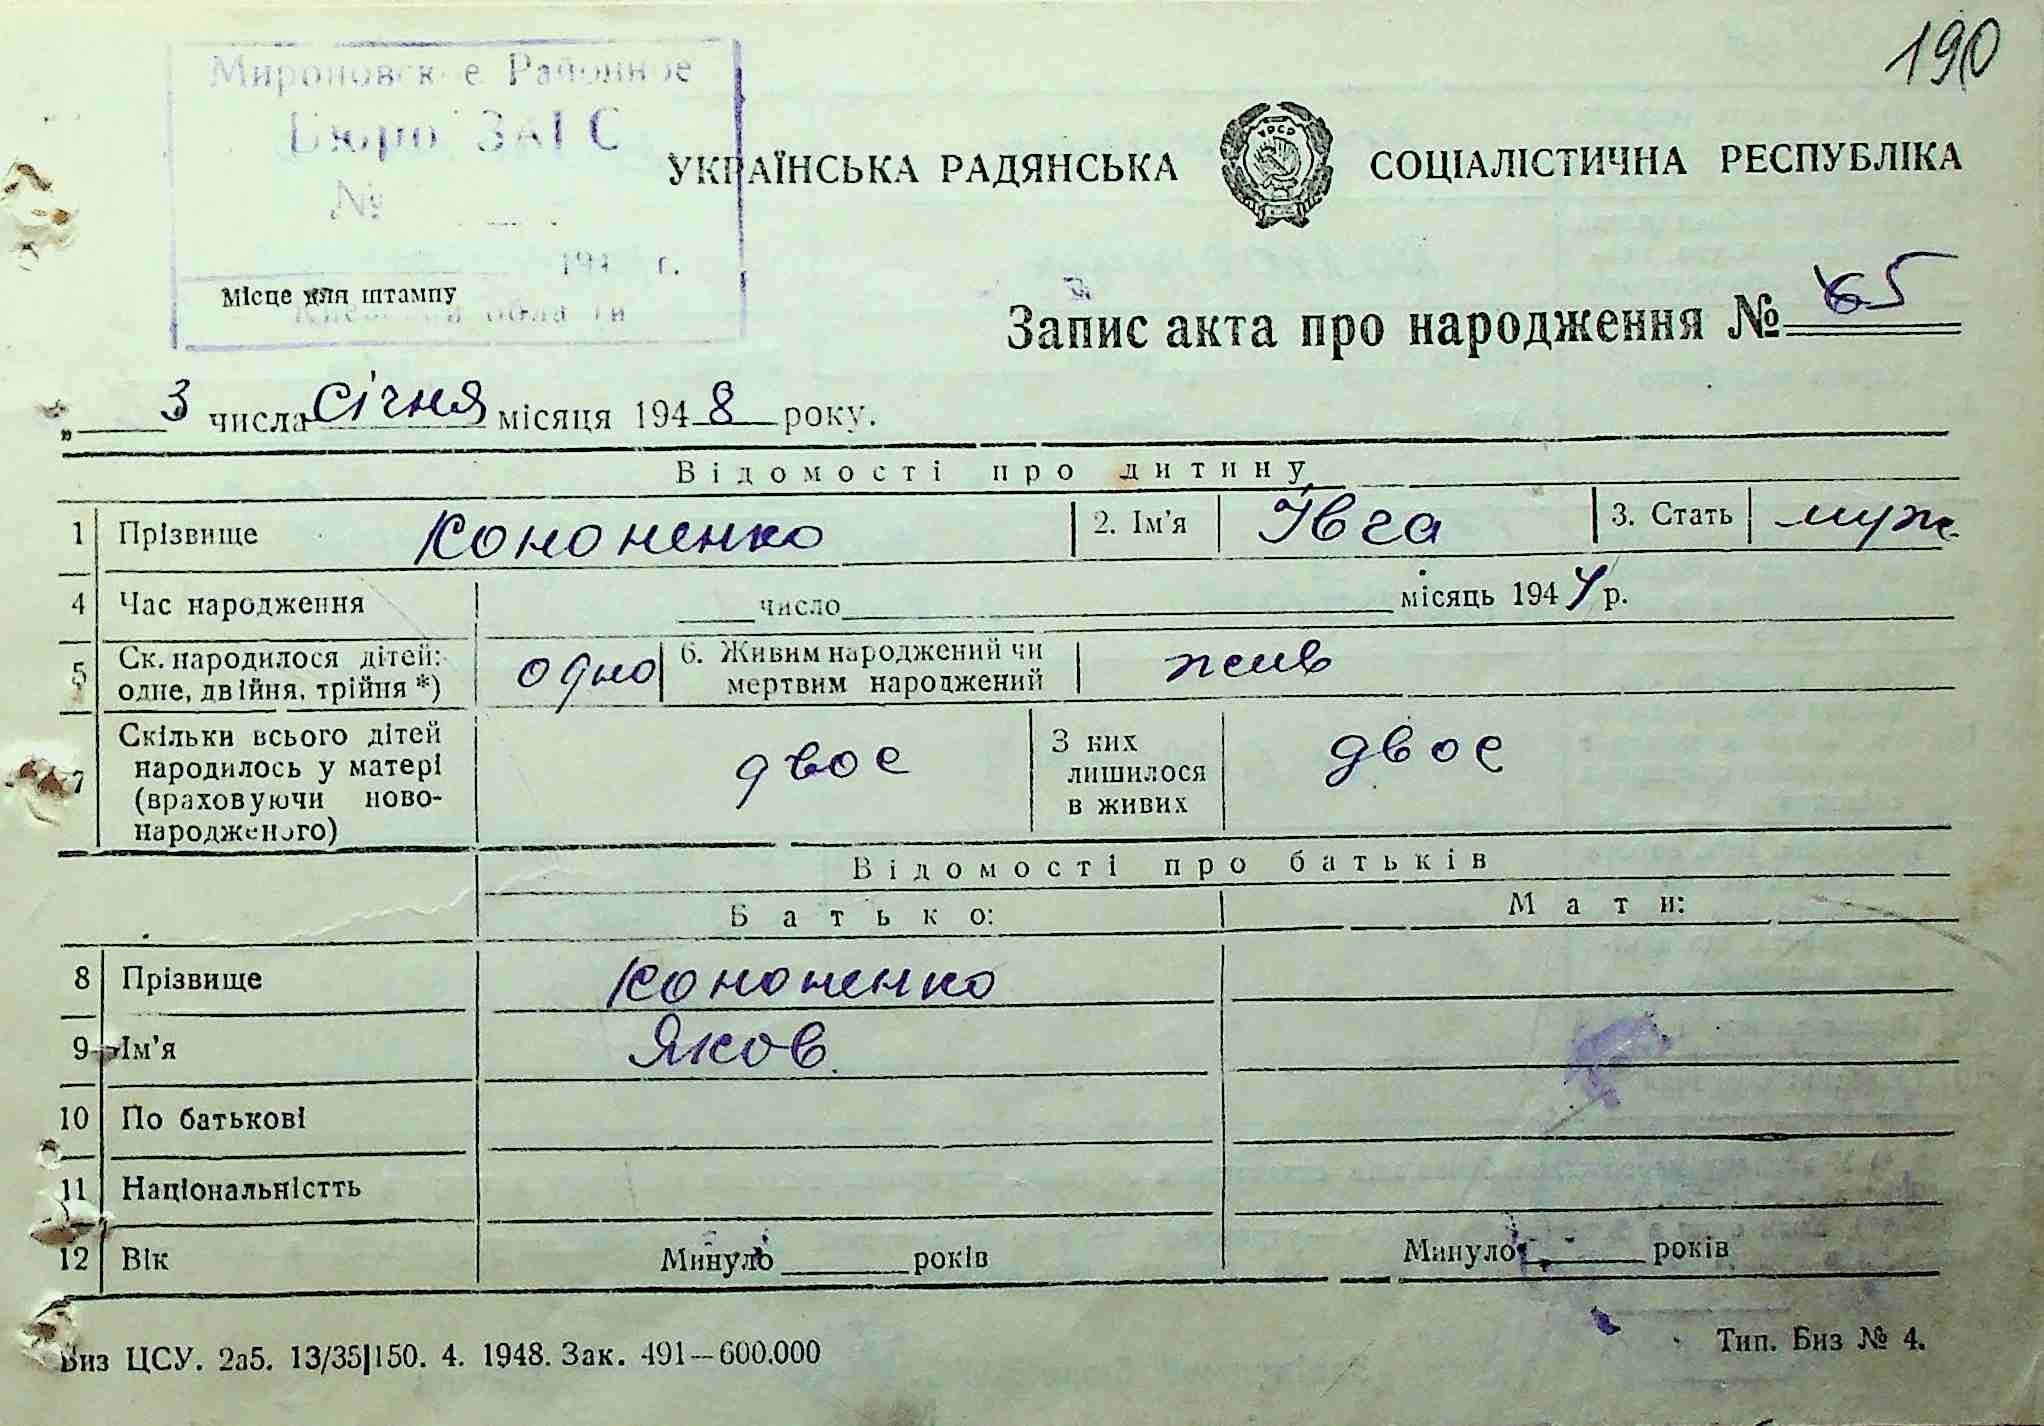 190
Мироновское Районное
Бюро ЗАГС
№
194 г.
Місце для штампу
Киевской области
УКРАЇНСЬКА РАДЯНСЬКА СОЦІАЛІСТИЧНА РЕСПУБЛІКА
УРСР
Запис акта про народження № 65
„ 3 " числа січня місяця 1948 року.
Відомості про дитину
1 Прізвище Кононенко 2. Ім'я Івга 3. Стать муж.
4 Час народження число місяць 194 р.
5 Ск. народилося дітей: одно 6. Живим народжений чи жив
одне, двійня, трійня *) мертвим народжений
7 Скільки всього дітей двоє З них двоє
народилось у матері лишилося
(враховуючи ново- в живих
народженого)
Відомості про батьків
Батько: Мати:
8 Прізвище Кононенко
9 Ім'я Яков
10 По батькові
11 Національністть
12 Вік Минуло років Минуло років
Биз ЦСУ. 2а5. 13/35|150. 4. 1948. Зак. 491—600.000 Тип. Биз № 4.